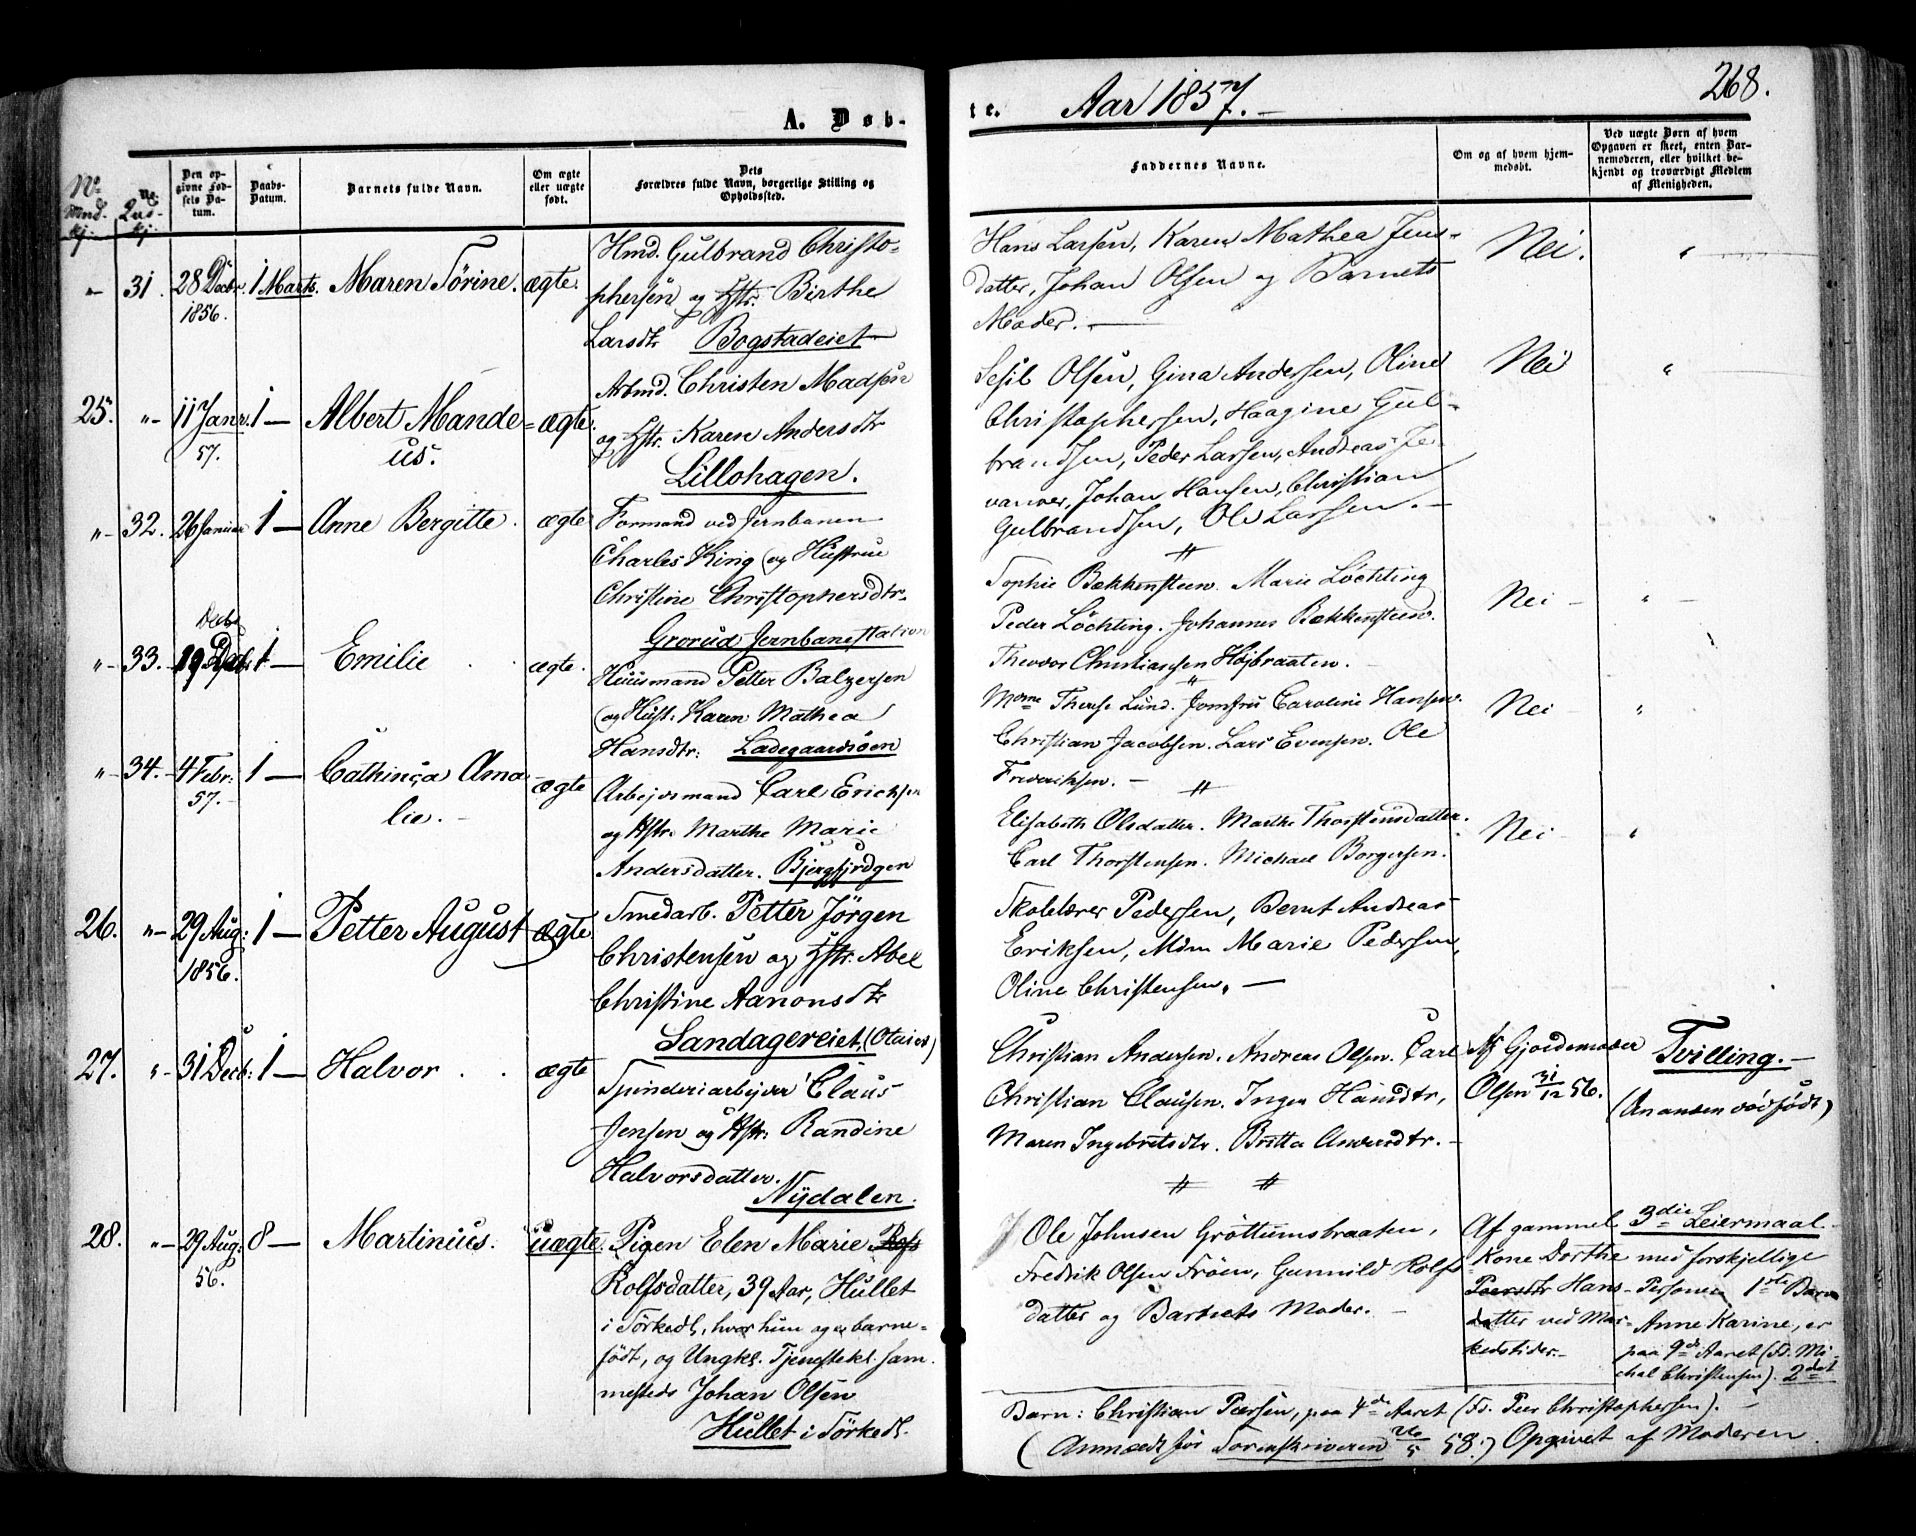 A. Døb-
te. Aar 1857.— 268.
No. Mnd. kj.
No. Qvi- kj.
Den op-
givne Fød-
sels Da-
tum.
Daabs-
Datum.
Barnets fulde Navn.
Om ægte
eller uægte
født.
Dets
Forældres fulde Navn, borgerlige Stilling og
Opholdssted.
Faddernes Navne.
Om og af hvem hjem-
medøbt.
Ved uægte Børn af hvem
Opgaven er skeet, enten Bar-
nemoderen, eller hvilket be-
kjendt og troværdigt Medlem
af Menigheden.
"- 31. 28 Decbr. 1856. 1 Marts. Maren Sørine. ægte.
Hmd. Gulbrand Christo-
phersen og Hstr. Birthe
Larsdtr Bogstadeiet
Hans Larsen, Karen Mathea Jens-
datter, Johan Olsen og Barnets
Moder.—
Nei. "
25. "- 11 Janr. 57. 1 — Albert Mande-
us. ægte.
Arbmd. Christen Madsen
og Hstr. Karen Andersdtr
Lillohagen.
Sesil Olsen, Gina Andersen, Oline
Christophersen, Haagine Gul-
brandsen, Peder Larsen, Andreas
Johan Hansen, Christian
Gulbrandsen, Ole Larssen.—
Nei "
"- 32. 26 Januar 1 — Anne Bergitte. ægte
Formand ved Jernbanen
Charles King og Hustrue
Christine Christophersdtr.
Grorud Jernbanestation
Sophie Bækkensteen. Marie Löchting
Peder Löchting. Johannes Bækkensteen.
Theodor Christiansen Højbraaten.
Nei — "
"- 33. 19 Decbr 1 — Emilie ægte.
Huusmand Petter Balzersen
og Hust. Karen Mathea
Hansdtr: Ladegaardsöen
Mdme Therese Lund. Jomfru Caroline Hansen.
Christian Jacobsen. Lars Evensen. Ole
Frederiksen.—
Nei — "
"- 34. 4 Febr: 57. 1 — Cathinca Ama-
lie. ægte
Arbejdsmand Carl Ericksen
og Hstr: Marthe Marie
Andersdatter. Bjergsjordgen
Elisabeth Olsdatter. Marthe Thorstensdatter.
Carl Thorstensen. Michael Borgersen.
Nei — "
26. "- 29 Aug: 1856. 1 — Petter August ægte
Smedarb. Petter Jörgen
Christensen og Hstr. Abel
Christine Aanonsdtr
Sandagereiet, (Olaies)
Skolelærer Pedersen, Bernt Andreas
Eriksen, Mdm Marie Pedersen,
Oline Christensen.—
27. "- 31 Decb: 1 — Halvor ægte
Spinderiarbejder Claus
Jensen og Hstr: Randine
Halvorsdatter.
Nydalen.
Christian Andersen. Andreas Olsen. Carl
Christian Clausen. Inger Hansdtr,
Maren Ingebretsdtr. Britta Amundsdtr.—
Af Gjordemoder
Olsen 31/12 56.
Tvilling.—
(den anden dödfödt)
28. "- 29 Aug: 56. 8 — Martinius. uægte.
Pigen Elen Marie Rofs
Rolfsdatter, 39 Aar, Hullet
i Sörkedl, hvor hun og er barne-
födt, og Ungkl. Tjenstekl. sam-
mesteds Johan Olsen
Hullet i Sörkedl.
Ole Johnsen Gröttumsbraaten,
Fredrik Olsen Fröen, Gunnild Rolfs
datter og Barnets Moder.—
Af gammel
Kone Dorthe
Peersdtr Hans-
datter ved Mar-
kedstider.—
3die Leiermaal
med forskjellige
Personer 1ste Barn
Anne Karine, er
paa 9de Aaret (Fd. Mi-
chal Christensen). 2det
Barn: Christian Pedersen, paa 4de Aaret (Fd. Peer Christophersen).—
(Anmeldt for Sorenskriveren 26/5 58.) Opgivet af Moderen.